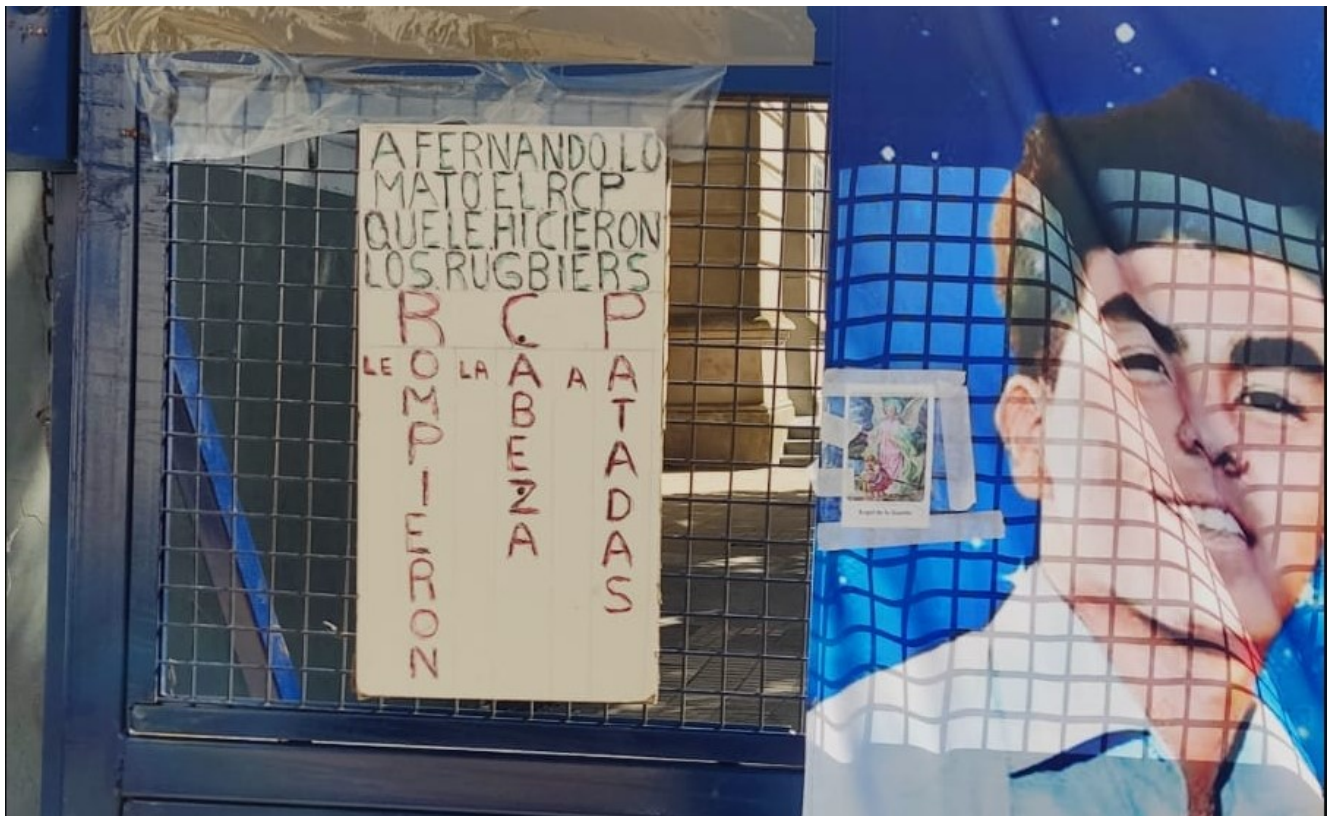 A FERNANDO LO
MATO EL RCP
QUE LE HICIERON
LOS RUGBIERS
R C P
LE ROMPIERON LA CABEZA A PATADAS
Angel de la Guarda